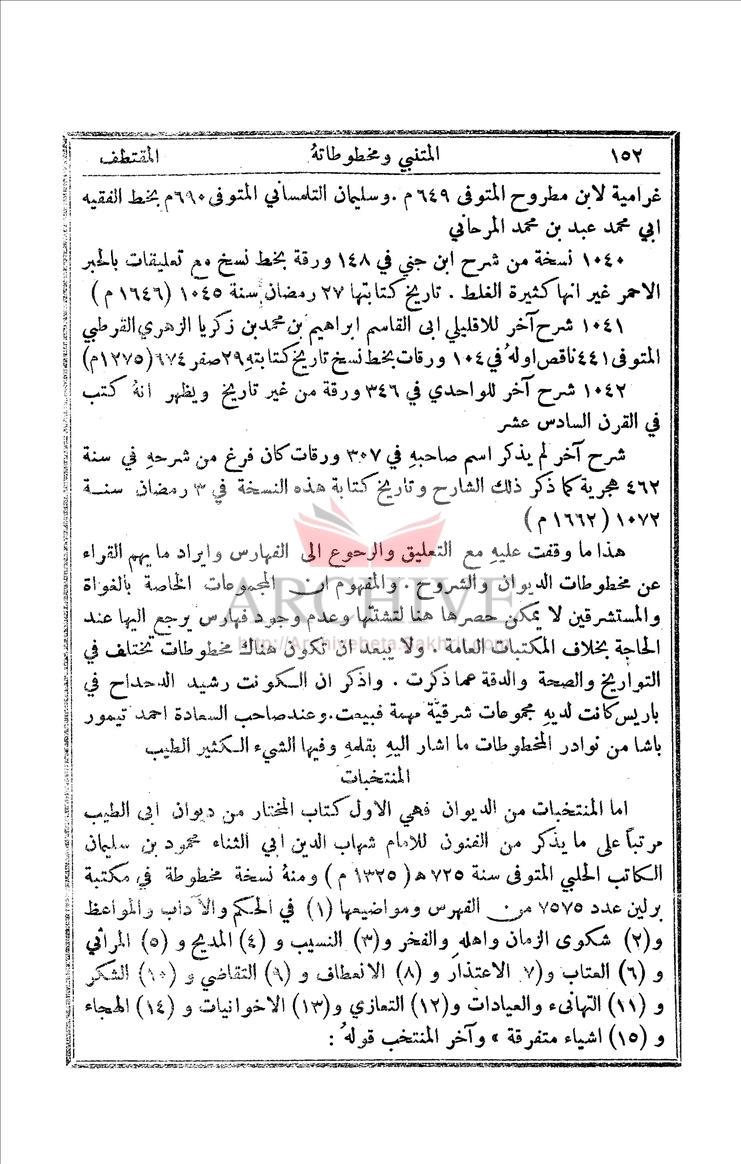 ١٥٢ المتنبي ومخطوطاتهُ المقتطف
غرامية لابن مطروح المتوفى ٦٤٩ م . وسليمان التلمساني المتوفى ٦٩٠ م بخط الفقيه
ابي محمد عبد بن محمد المرحاني
١٠٤٠ نسخة من شرح ابن جني في ١٤٨ ورقة بخط نسخ مع تعليقات بالحبر
الاحمر غير انها كثيرة الغلط . تاريخ كتابتها ٢٧ رمضان سنة ١٠٤٥ (١٦٤٦ م)
١٠٤١ شرح آخر للاقليلي ابى القاسم ابراهيم بن محمد بن زكريا الزهري القرطبي
المتوفى ٤٤١ ناقص اولهُ في ١٠٤ ورقات بخط نسخ تاريخ كتابتهِ ٢٩ صفر ٦٧٤ (١٢٧٥م)
١٠٤٢ شرح آخر للواحدي في ٣٤٦ ورقة من غير تاريخ ويظهر انهُ كتب
في القرن السادس عشر
شرح آخر لم يذكر اسم صاحبهِ في ٣٠٧ ورقات كان فرغ من شرحهِ في سنة
٤٦٢ هجرية كما ذكر ذلك الشارح وتاريخ كتابة هذه النسخة في ٣ رمضان سنة
١٠٧٢ (١٦٦٢ م)
هذا ما وقفت عليهِ مع التعليق والرجوع الى الفهارس وايراد ما يهم القراء
عن مخطوطات الديوان والشروح . والمفهوم ان المجموعات الخاصة بالغواة
والمستشرقين لا يمكن حصرها هنا لتشتتها وعدم وجود فهارس يرجع اليها عند
الحاجة بخلاف المكتبات العامة . ولا يبعد ان تكون هناك مخطوطات تختلف في
التواريخ والصحة والدقة عما ذكرت . واذكر ان الكونت رشيد الدحداح في
باريس كانت لديهِ مجموعات شرقيّة مهمة فبيعت . وعند صاحب السعادة احمد تيمور
باشا من نوادر المخطوطات ما اشار اليهِ بقلمهِ وفيها الشيء الكثير الطيب
المنتخبات
اما المنتخبات من الديوان فهي الاول كتاب المختار من ديوان ابى الطيب
مرتباً على ما يذكر من الفنون للامام شهاب الدين ابي الثناء محمود بن سليمان
الكاتب الحلبي المتوفى سنة ٧٢٥ ه (١٣٢٥ م) ومنهُ نسخة مخطوطة في مكتبة
برلين عدد ٧٥٧٥ من الفهرس ومواضيعها (١) في الحكم والآداب والمواعظ
و(٢) شكوى الزمان واهلهِ والفخر و(٣) النسيب و (٤) المديح و (٥) المراثي
و (٦) العتاب و(٧) الاعتذار و (٨) الانعطاف و (٩) التقاضي و (١٠) الشكر
و (١١) التهانىء والعيادات و(١٢) التعازي و(١٣) الاخوانيات و (١٤) الهجاء
و (١٥) اشياء متفرقة » وآخر المنتخب قولهُ :
ARCHIVE
http://Archivebeta.Sakhrit.com